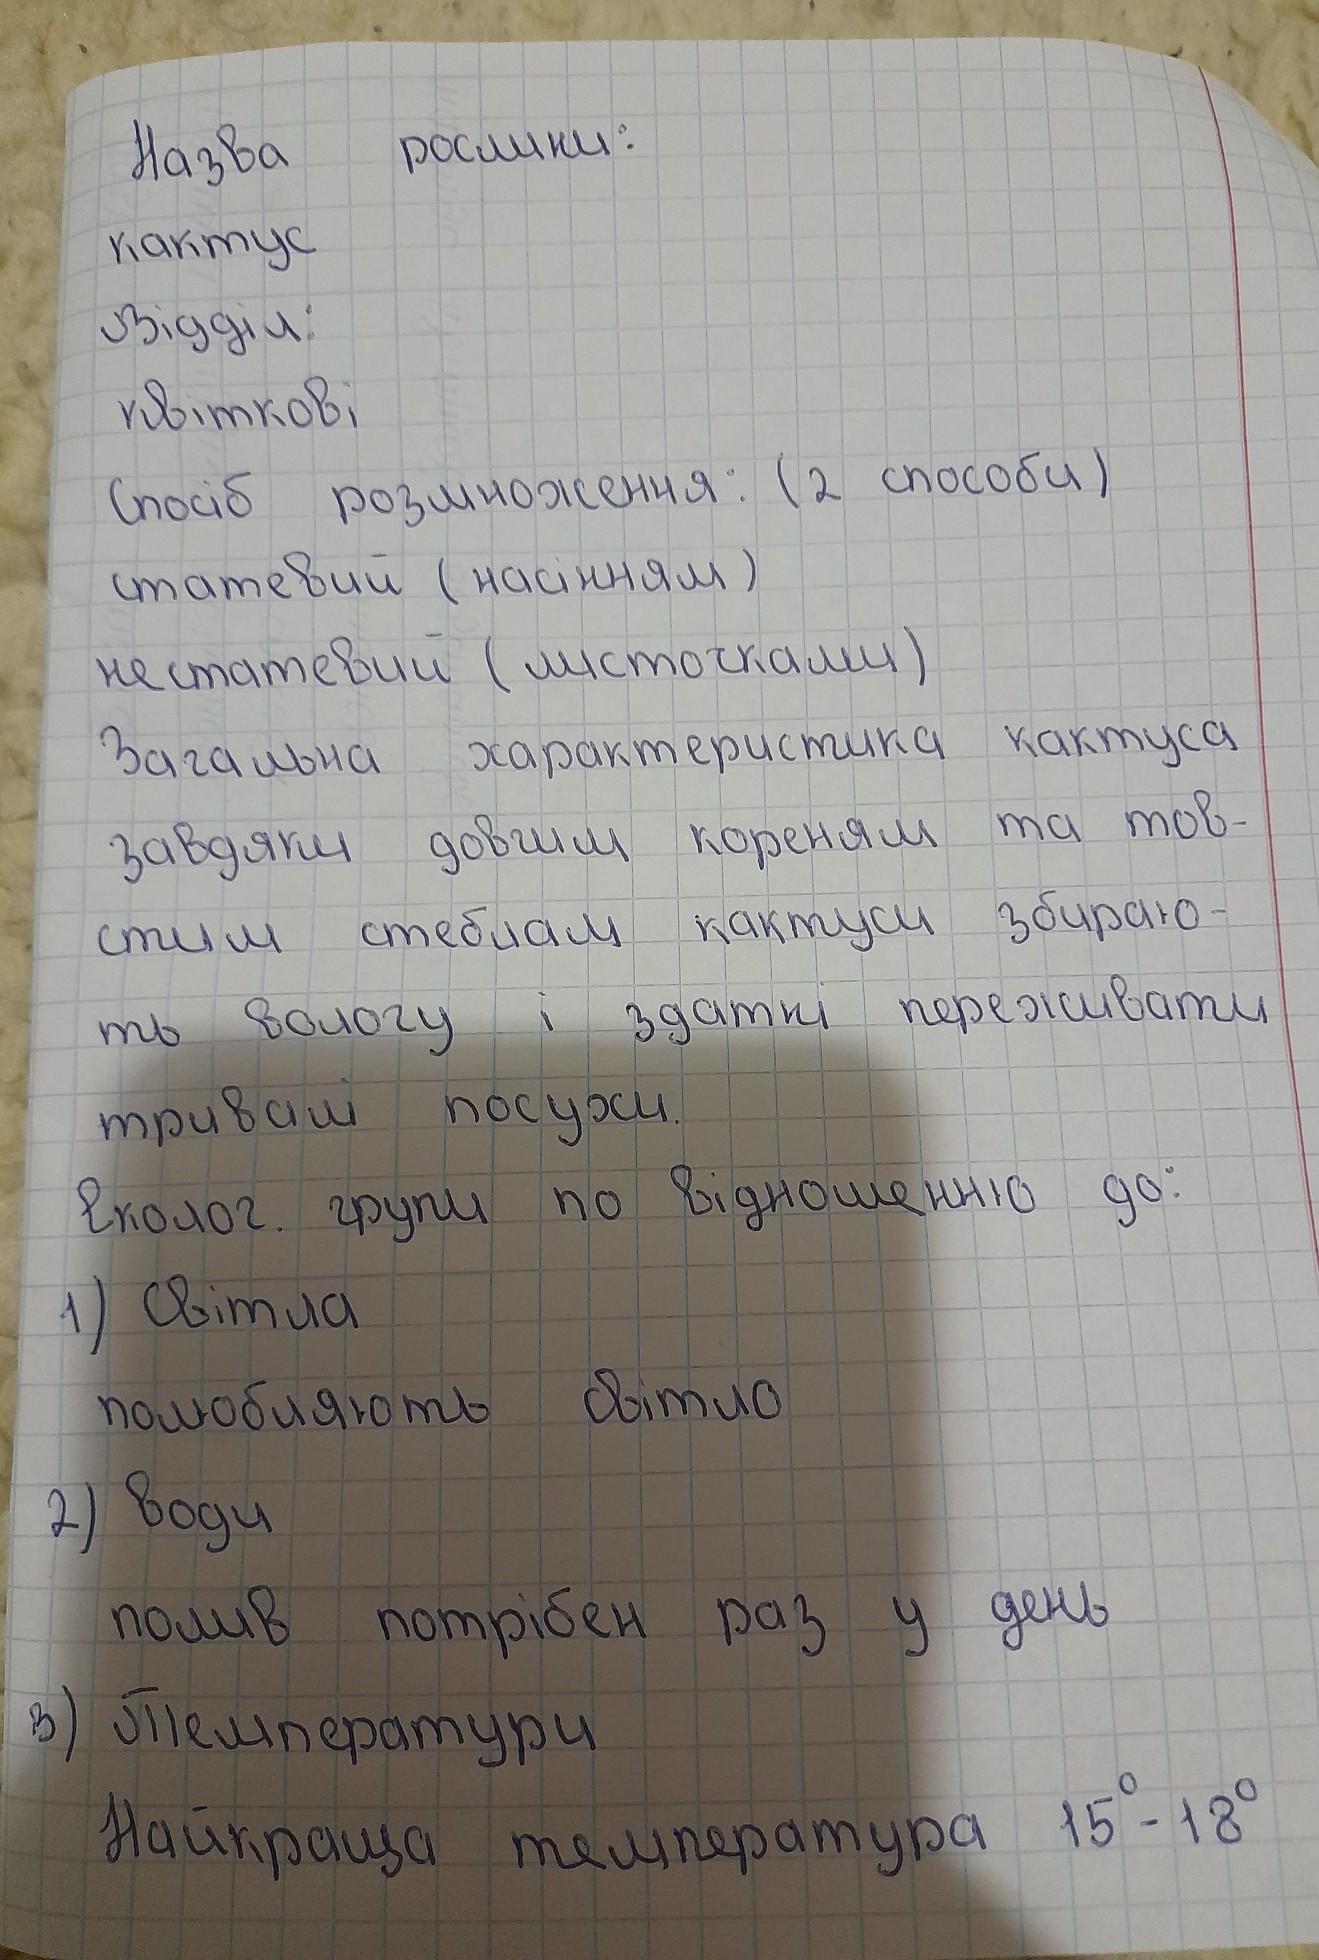 Назва рослини:
кактус
Відділ:
квіткові
Спосіб розмноження: (2 способи)
статевий (насінням)
нестатевий (листочками)
Загальна характеристика кактуса
завдяки довгим кореням та тов-
стим стеблам кактуси збираю-
ть вологу і здатні переживати
тривалі посухи.
Еколог. групи по відношенню до:
1) Світла
полюбляють світло
2) води
полив потрібен раз у день
3) Температури
Найкраща температура 15°-18°